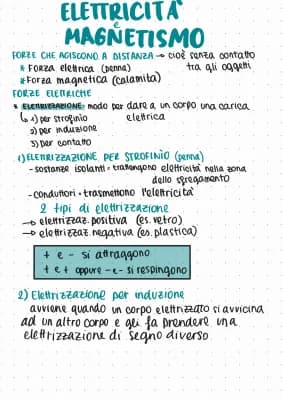 ELETTRICITÀ
e
MAGNETISMO
FORZE CHE AGISCONO A DISTANZA → cioè senza contatto
* Forza elettrica (penna) tra gli oggetti
* Forza magnetica (calamita)
FORZE ELETTRICHE
* ELETTRIZZAZIONE: modo per dare a un corpo una carica
↳ 1) per strofinio elettrica
2) per induzione
3) per contatto
1) ELETTRIZZAZIONE PER STROFINIO (penna)
- sostanze isolanti = trattengono elettricità nella zona
dello sfregamento
- conduttori = trasmettono l'elettricità
2 tipi di elettrizzazione
→ elettrizzaz. positiva (es. vetro)
→ elettrizzaz. negativa (es. plastica)
+ e - si attraggono
+ e + oppure - e - si respingono
2) Elettrizzazione per induzione
avviene quando un corpo elettrizzato si avvicina
ad un altro corpo e gli fa prendere una
elettrizzazione di segno diverso